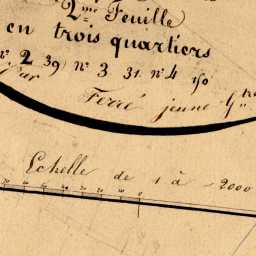 2me Feuille
en trois quartiers
no 2 39 no 3 31. no 4
par
Ferré jeune
Echelle de 1 à 2000